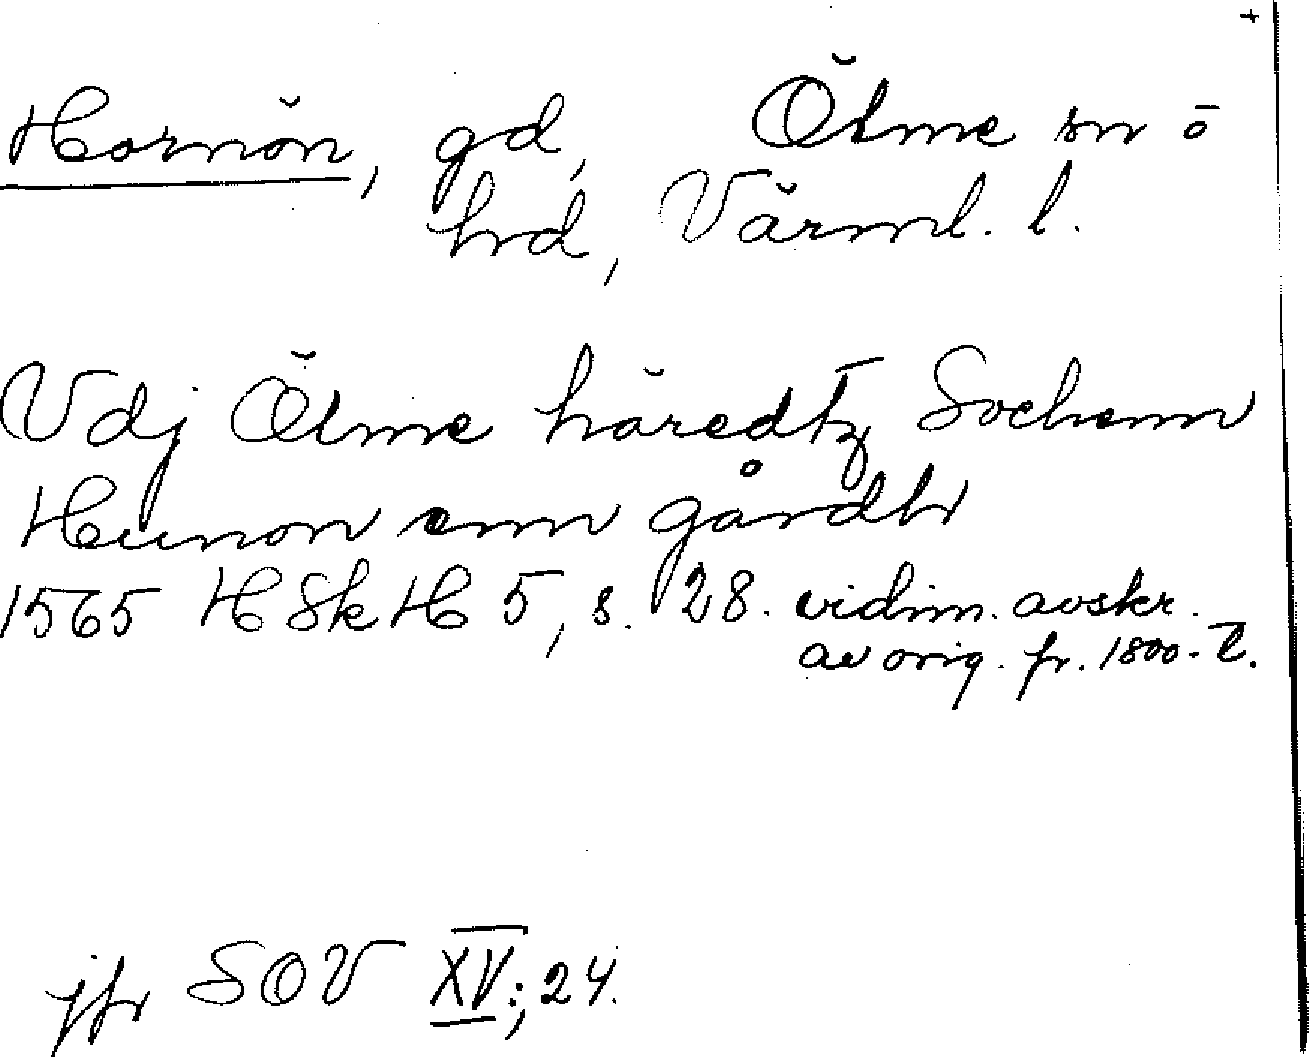 +
Hornön, gd, Ölme sn o
hrd, Värml. l.
Vdj Ölme häredtz Sochenn
Hunon enn gårdh
1565 HSkH 5, s. 28. vidim. avskr.
av orig. fr. 1800-t.
jfr SOV XV; 24.